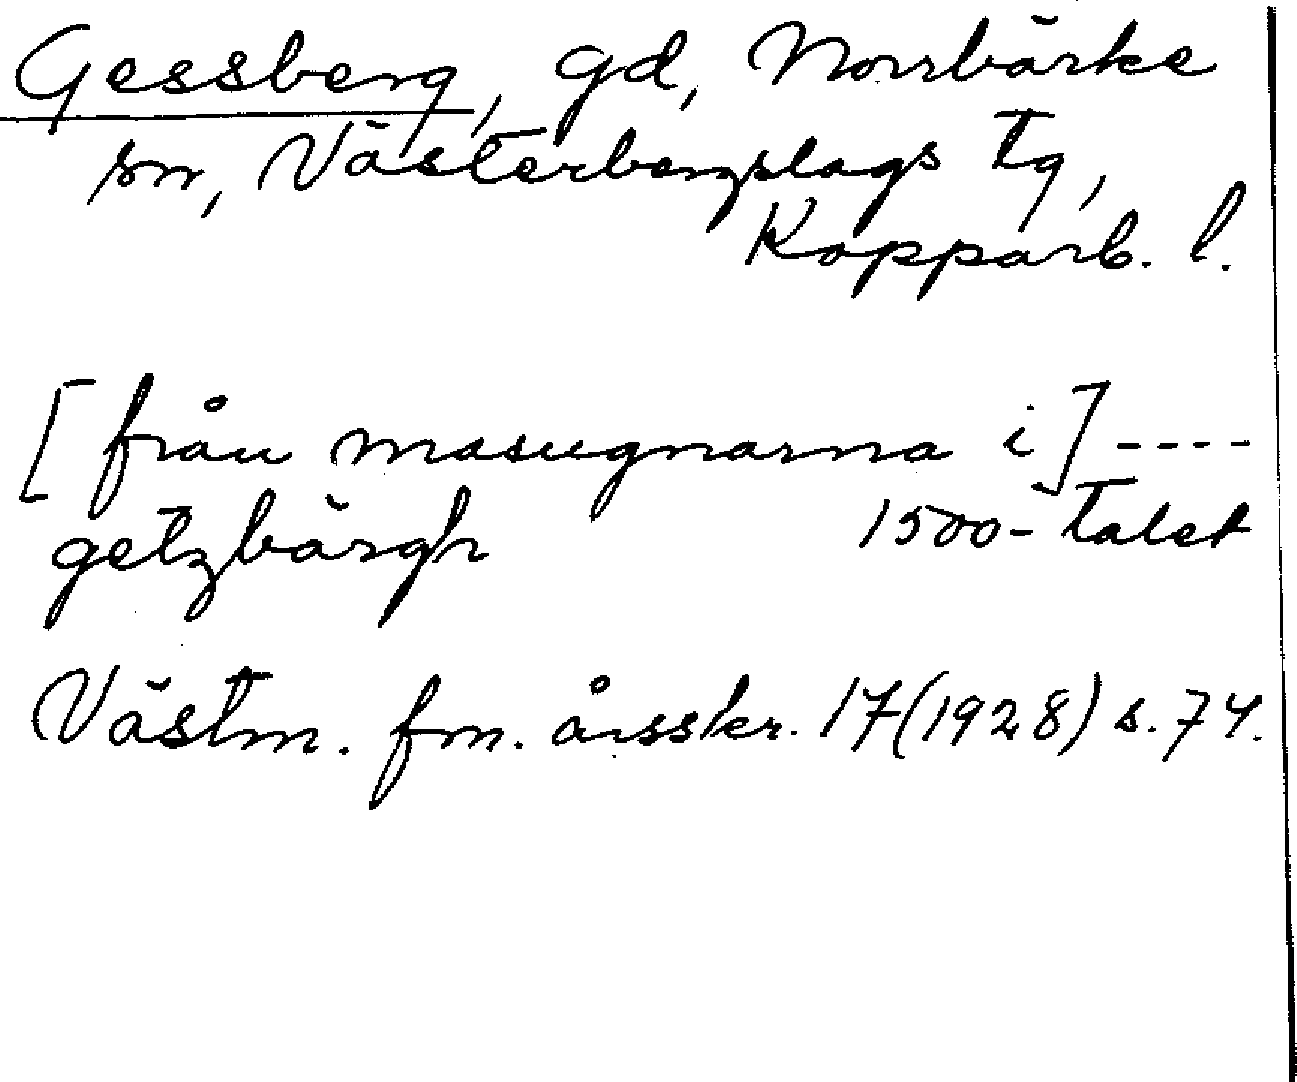 Gessberg, gd, Norrbärke
sn, Västerbergslags tg,
Kopparb. l.
[från masugnarna i] ----
getzbärgh 1500-talet
Västm. fm. årsskr. 17(1928) s. 74.